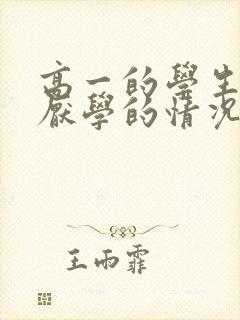 高一的學生
厭學的情況
王雨霏